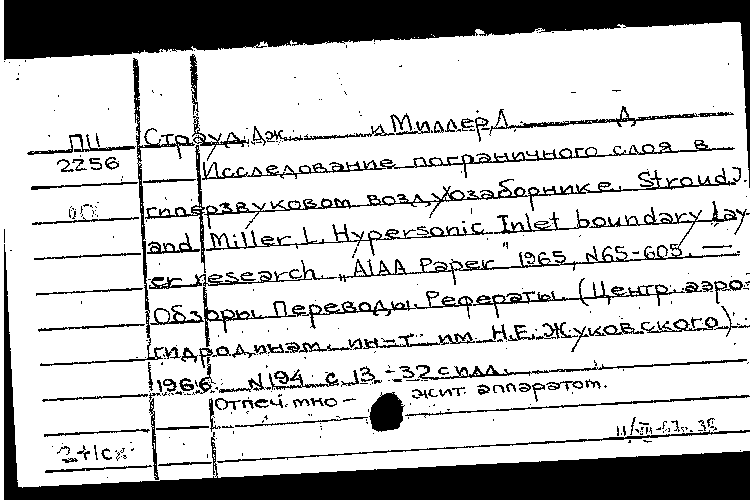 ПИ Строуд, Дж. и Миллер, Л. Д
2256 Исследование пограничного слоя в
гиперзвуковом воздухозаборнике. Stroud J.
and Miller, L. Hypersonic Inlet boundary lay-
er research. „AIAA Paper" 1965, N65-605. —.
Обзоры. Переводы. Рефераты. (Центр. аэро-
гидродинам. ин-т им Н.Е. Жуковского)
1966 N194 с. 13-32 с илл.
Отпеч. мно- жит. аппаратом.
2+1сх